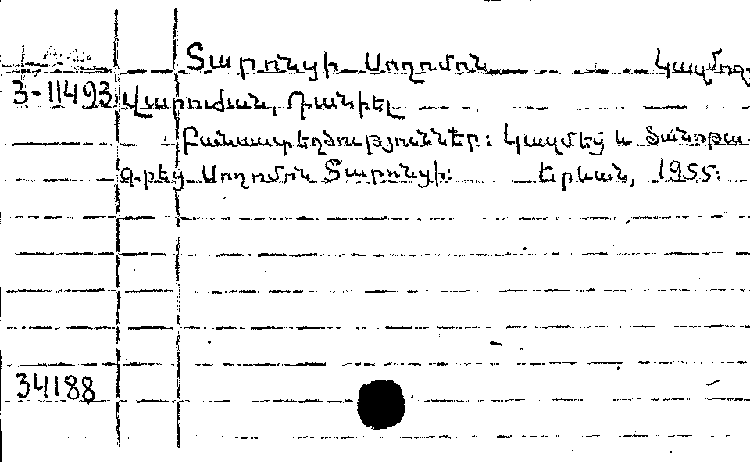 Տարոնցի Սողոմոն Կազմող
3-11493 Վարուժան, Դանիել
Բանաստեղծություններ: Կազմեց և ծանոթա-
գրեց Սողոմոն Տարոնցի: Երևան, 1955:
34188